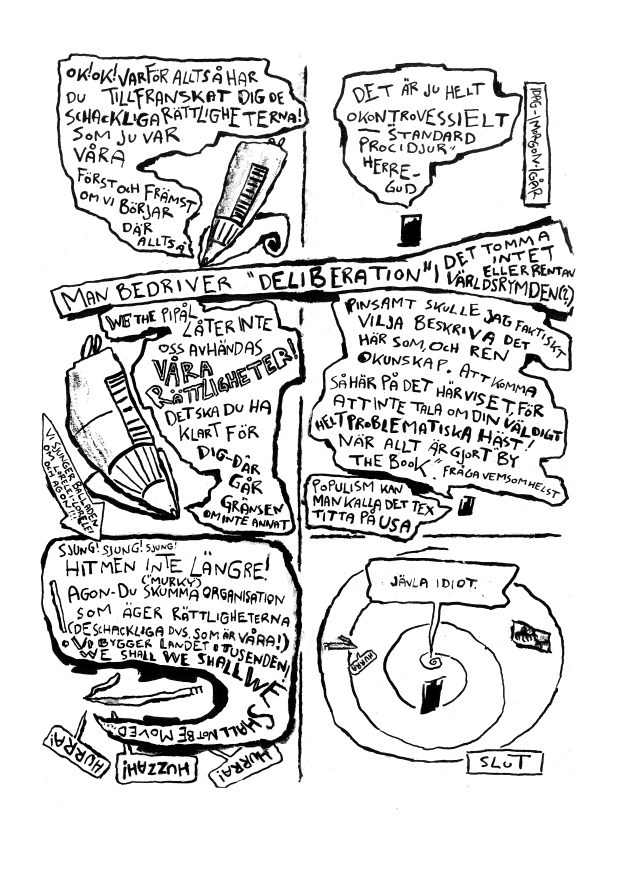 OK! OK! VARFÖR ALLTSÅ HAR
DU TILLFRANSKAT DIG DE
SCHACKLIGA RÄTTLIGHETERNA!
SOM JU VAR
VÅRA
FÖRST OCH FRÄMST
OM VI BÖRJAR
DÄR
ALLTSÅ
DET ÄR JU HELT
OKONTROVESSIELT
STANDARD
PROCIDJUR"
HERRE-
GUD
IDAG-IMORGON-IGÅR
MAN BEDRIVER "DELIBERATION" I
DET TOMMA
INTET
ELLER RENTAV
VÄRLDSRYMDEN(?)
WE THE PIPÅL
LÅTER INTE
OSS AVHÄNDAS
VÅRA
RÄTTLIGHETER!
DET SKA DU HA
KLART FÖR
DIG-DÄR
GÅR
GRÄNSEN
OM INTE ANNAT
VI SJUNGER BALLADEN
OM
OCH AGON!!
PINSAMT SKULLE JAG FAKTISKT
VILJA BESKRIVA DET
HÄR SOM, OCH REN
OKUNSKAP. ATT KOMMA
SÅ HÄR PÅ DET HÄR VISET, FÖR
ATT INTE TALA OM DIN VÄLDIGT
HELT PROBLEMATISKA HÄST!
NÄR ALLT ÄR GJORT BY
THE BOOK." FRÅGA VEMSOMHELST
POPULISM KAN
MAN KALLA DET TEX
TITTA PÅ USA
SJUNG! SJUNG! SJUNG!
HIT MEN INTE LÄNGRE!
("MURKY")
AGON-DU SKUMMA ORGANISATION
SOM ÄGER RÄTTLIGHETERNA
(DE SCHACKLIGA DVS. SOM ÄR VÅRA!)
VI BYGGER LANDET I TUSENDEN!
WE SHALL WE SHALL WE
SHALL NOT BE MOVED
HURRA!
HUZZAH!
HURRA!
JÄVLA IDIOT.
HURRA
SLUT